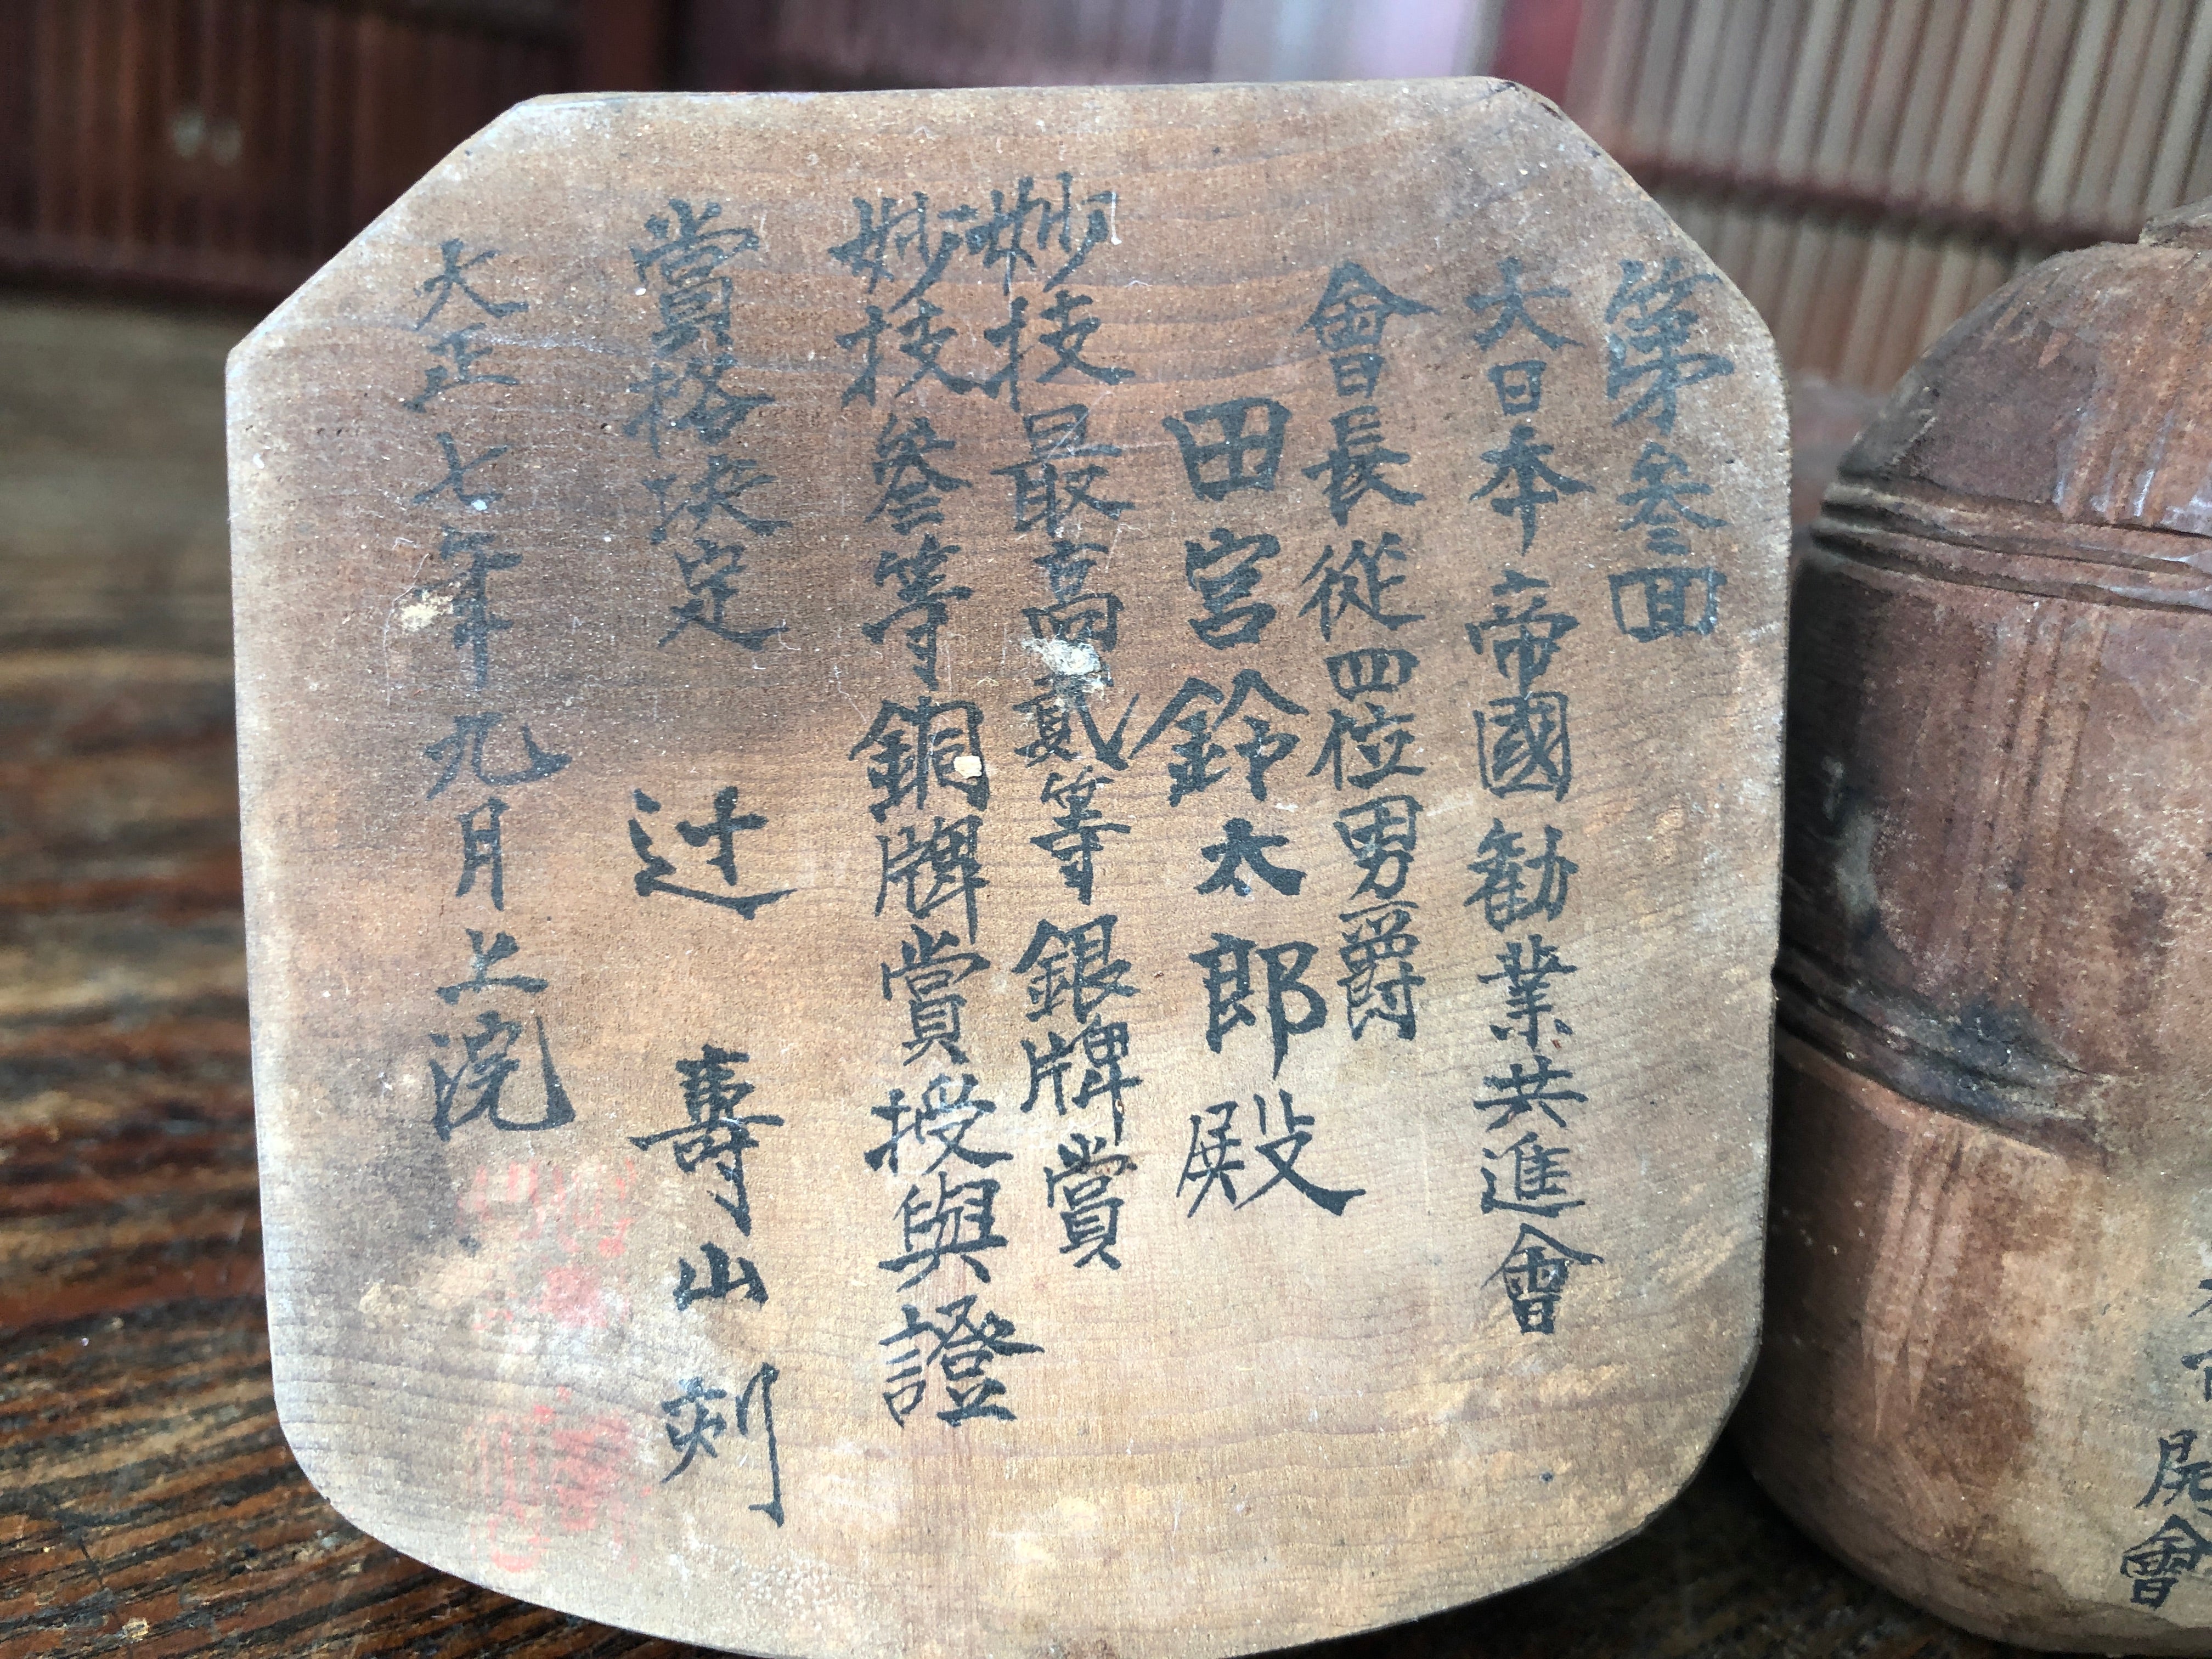 第参回
大日本帝國勧業共進會
會長従四位男爵
田宮鈴太郎殿
妙技最高貳等銀牌賞
妙技参等銅牌賞授與證
賞格決定
辻 壽山刻
大正七年九月上浣
開會